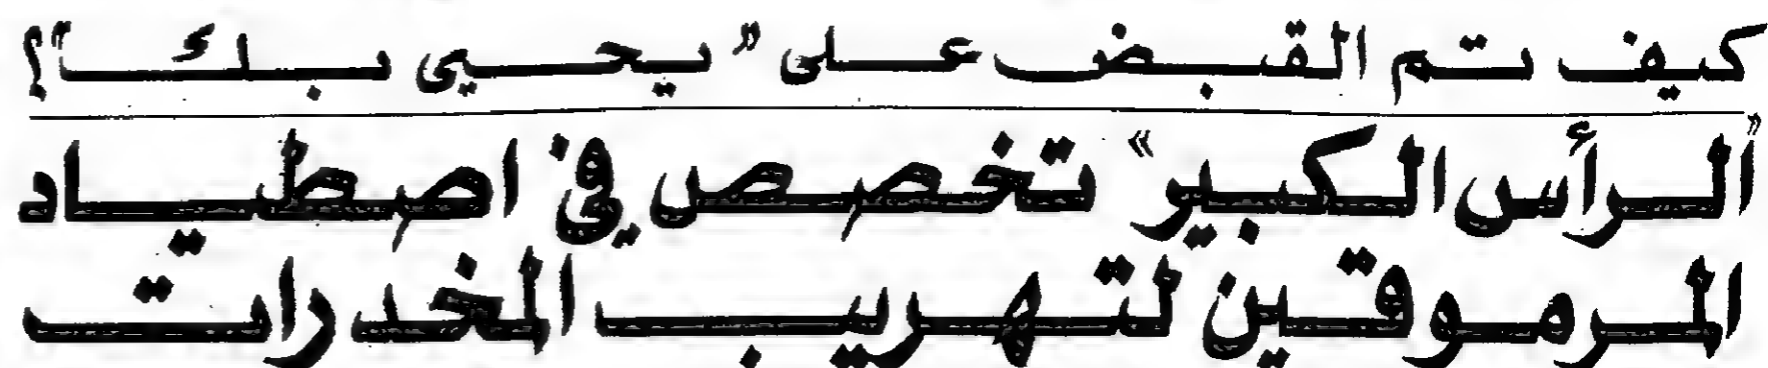 كيف تم القبض على "يحيى بك"؟
"الرأس الكبير" تخصص في اصطياد
المرموقين لتهريب المخدرات